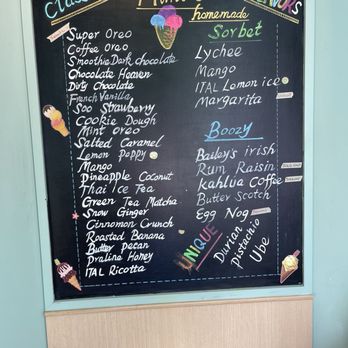 homemade
Super Oreo
Coffee Oreo
Smoothie Dark Chocolate
Chocolate Heaven
Dirty Chocolate
French Vanilla
Soo Strawberry
Cookie Dough
Mint Oreo
Salted Caramel
Lemon Poppy
Mango
Pineapple Coconut
Thai Ice Tea
Green Tea Matcha
Snow Ginger
Cinnomon Crunch
Roasted Banana
Butter Pecan
Praline Honey
ITAL Ricotta
Sorbet
Lychee
Mango
ITAL Lemon ice
Margarita
Boozy
Bailey's irish
Rum Raisin
Kahlua Coffee
Butter Scotch
Egg Nog
UNIQUE
Durian
Pistachio
Ube